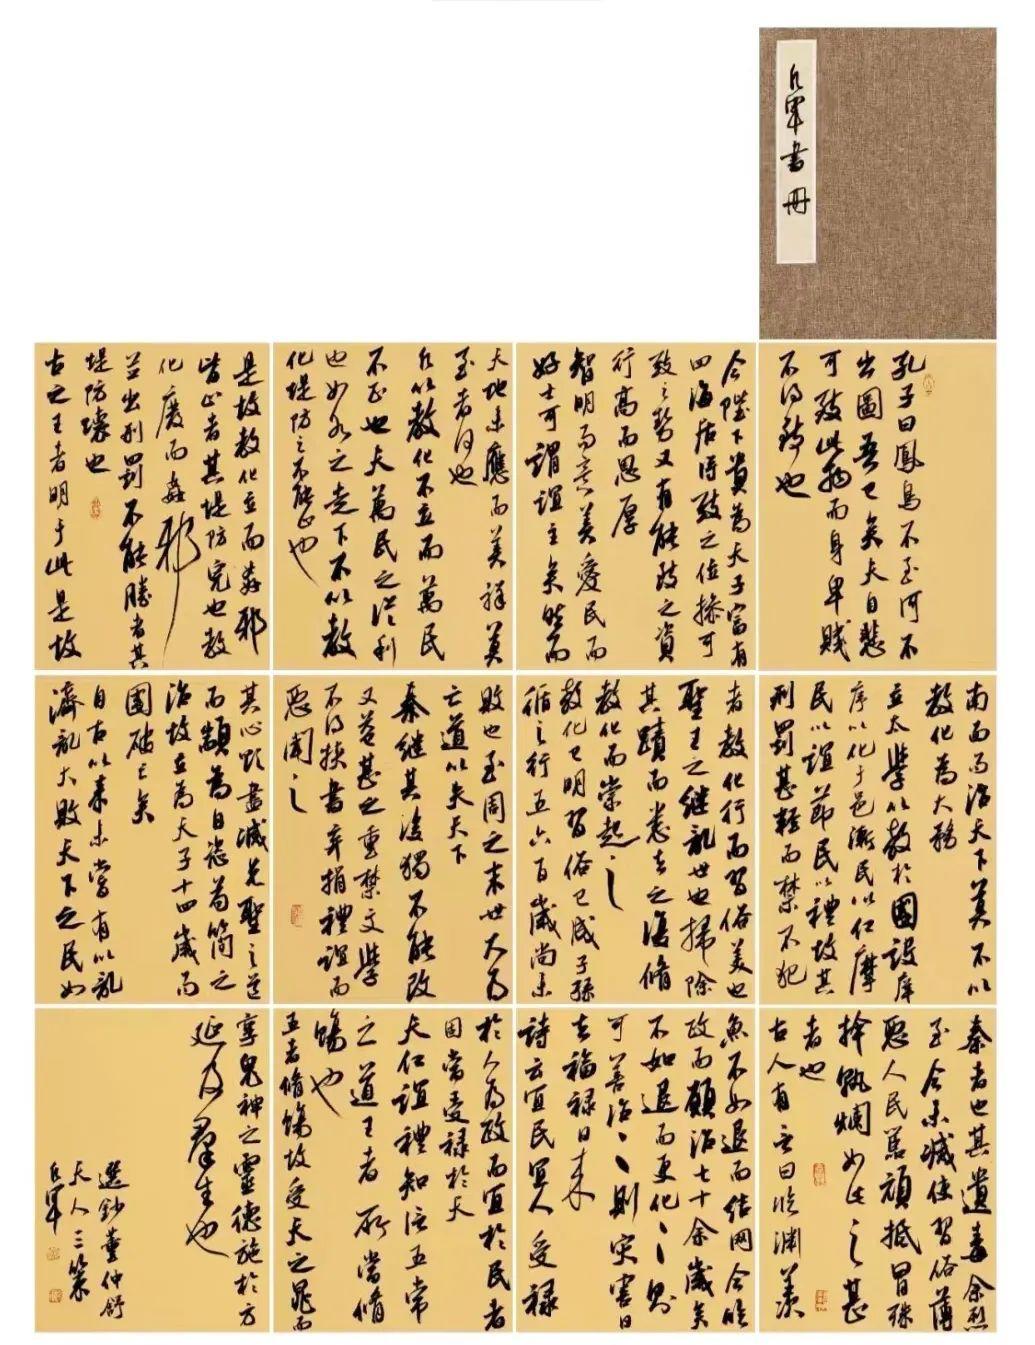 丘軍书册
孔子曰鳳鳥不至河不
出圖吾已矣夫自悲
可致此物而身卑賤
不得致也
今陛下貴為天子富有
四海居得致之位操可
致之勢又有能致之資
行高而恩厚
智明而意美愛民而
好士可謂誼主矣然而
天地未應而美祥莫
至者何也
凡以教化不立而萬民
不正也夫萬民之從利
也如水之走下不以教
化堤防之不能止也
是故教化立而姦邪
皆止者其堤防完也教
化廢而姦邪
並出刑罰不能勝者其
堤防壞也
古之王者明于此是故
南面而治天下莫不以
教化為大務
立太學以教於國設庠
序以化于邑漸民以仁摩
民以誼節民以禮故其
刑罰甚輕而禁不犯
者教化行而習俗美也
聖王之繼亂世也掃除
其蹟而悉去之復脩
教化而崇起之
教化已明習俗已成子孫
循之行五六百歲尚未
敗也至周之末世大為
亡道以失天下
秦繼其後獨不能改
又益甚之重禁文學
不得挾書棄捐禮誼而
惡聞之
其心欲盡滅先聖之道
而顓為自恣苟簡之
治故立為天子十四歲而
國破亡矣
自古以來未嘗有以亂
濟亂大敗天下之民如
秦者也其遺毒餘烈
至今未滅使習俗薄
惡人民嚚頑抵冒殊
捍孰爛如此之甚
者也
古人有言曰臨淵羨
魚不如退而結網今臨
政而願治七十余歲矣
不如退而更化〻則
可善治〻則災害日
去福祿日來
詩云宜民宜人受祿
於人為政而宜於民者
固當受祿於天
夫仁誼禮知信五常
之道王者所當脩
飭也
五者脩飭故受天之祐而
享鬼神之靈德施於方
延及羣生也
選鈔董仲舒
天人三策
丘軍